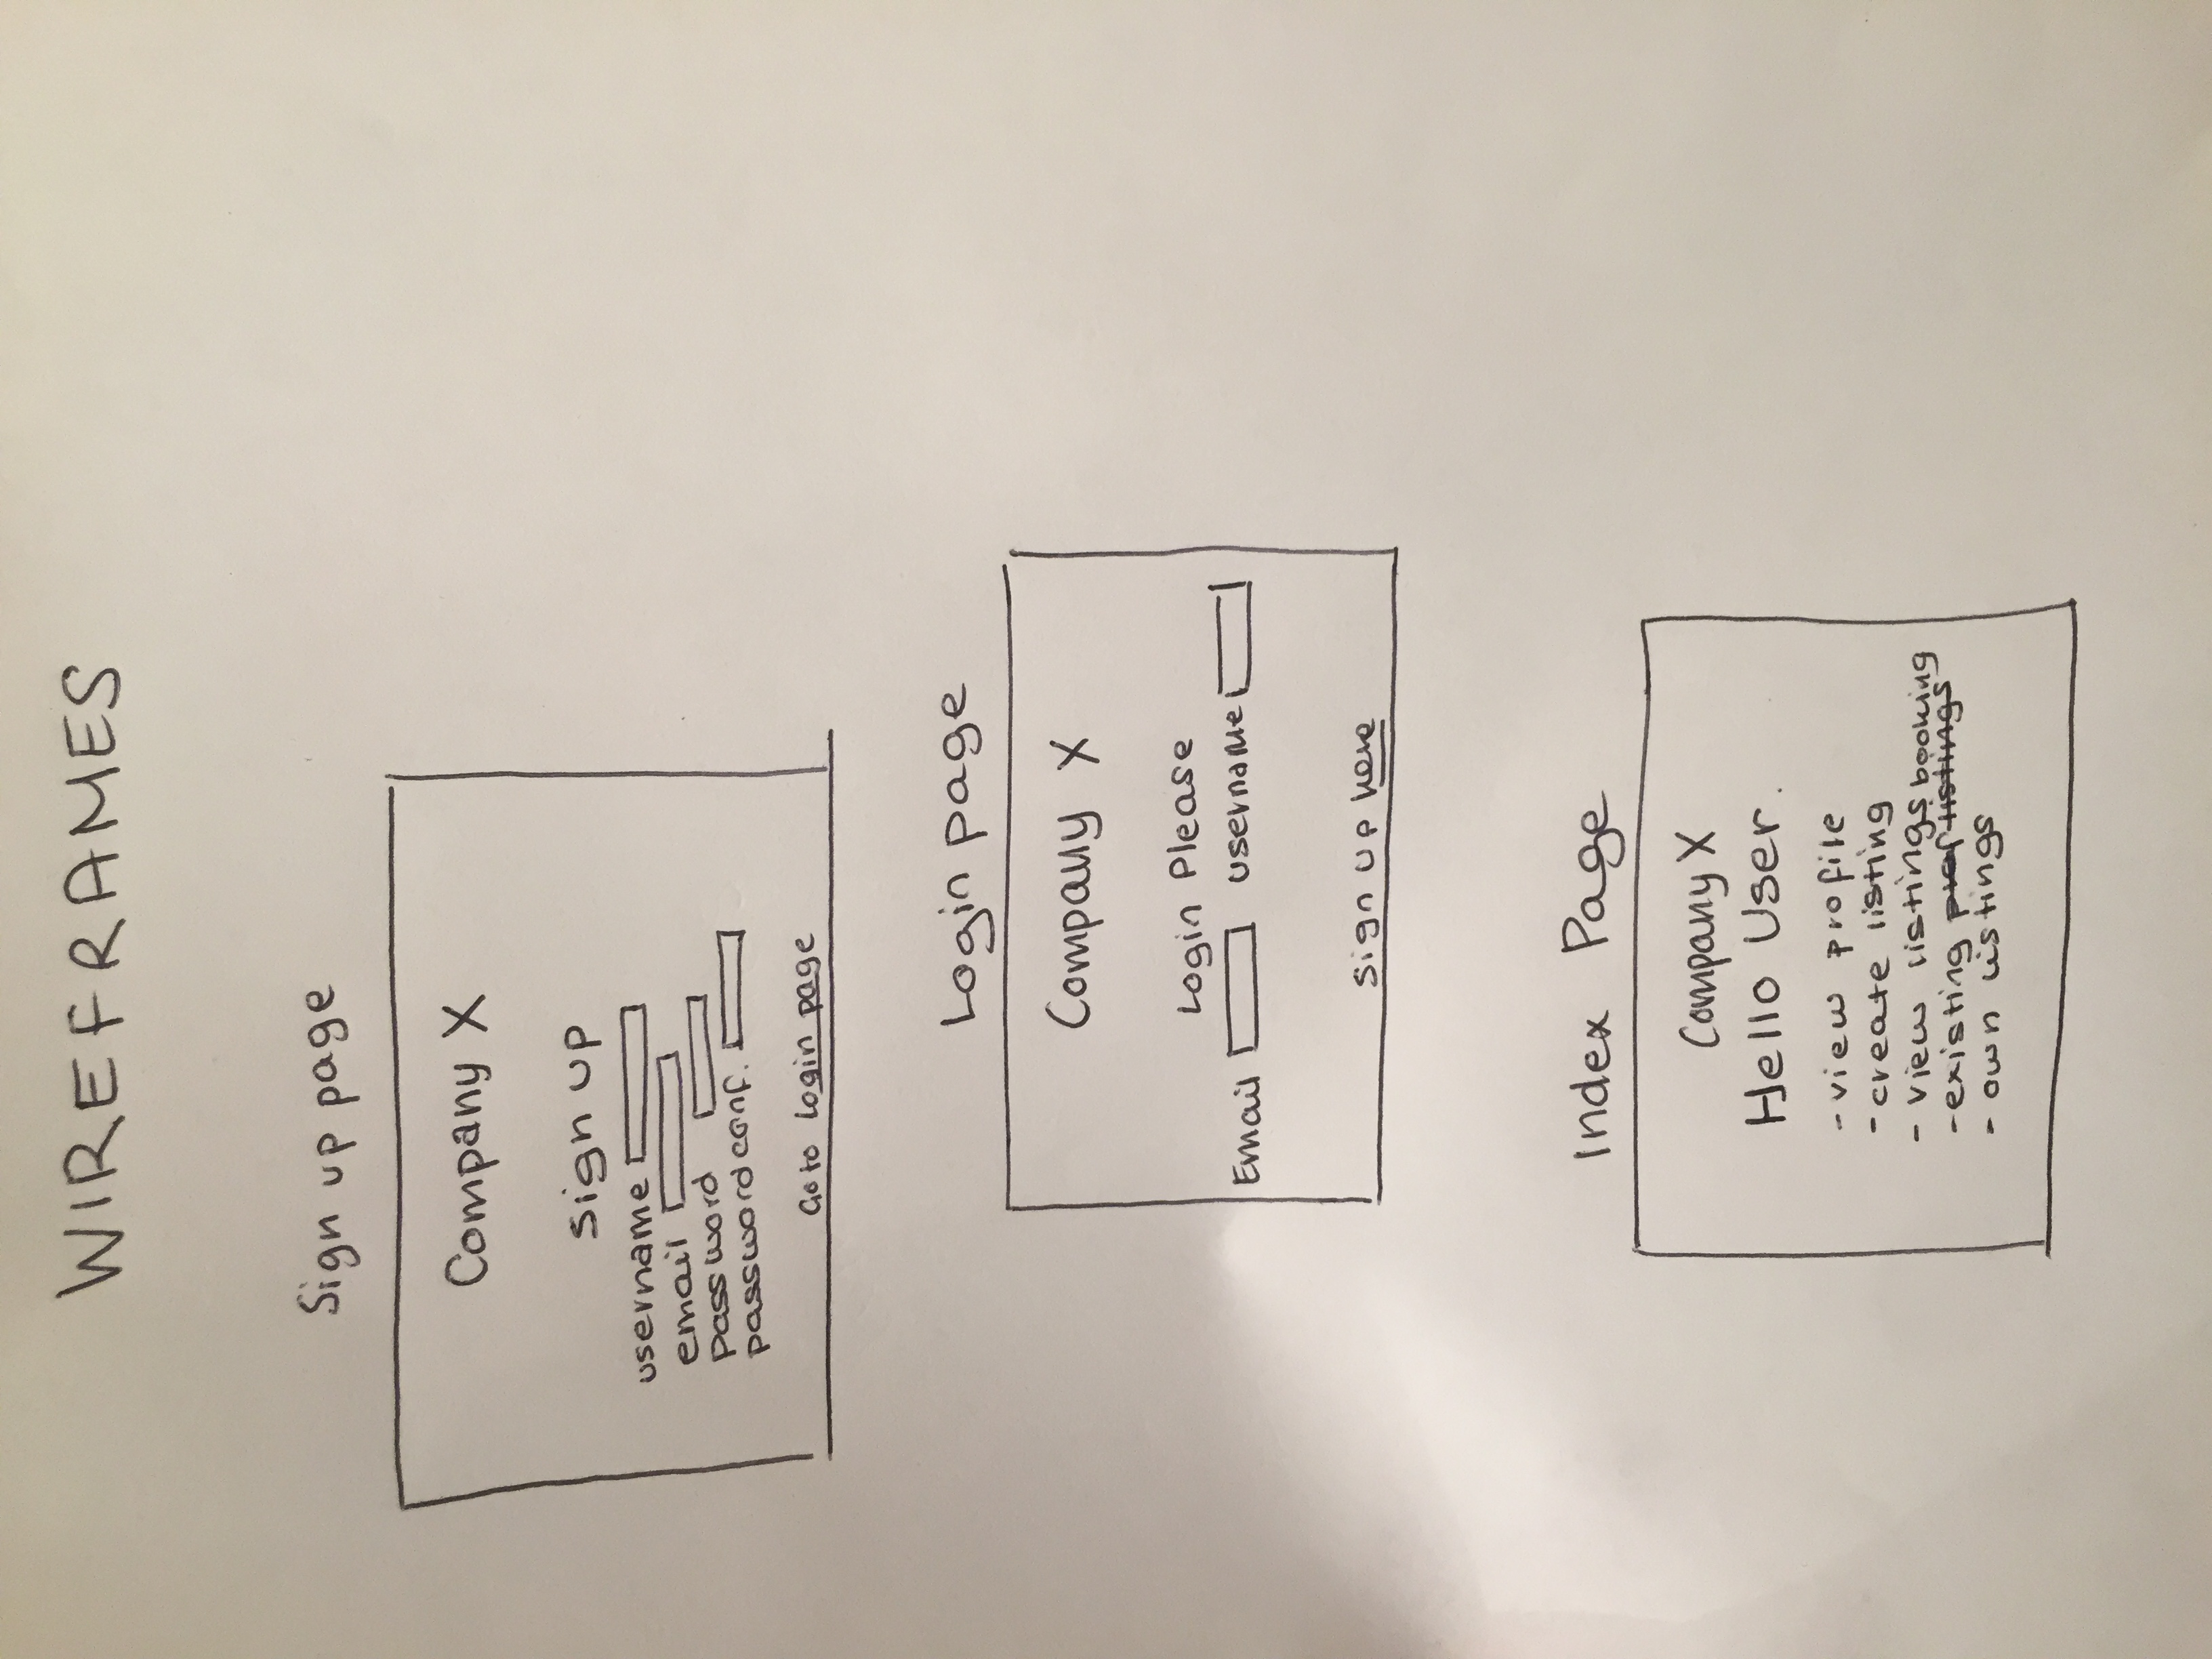 WIREFRAMES
Sign up page
Company X
sign up
username
email
password
password conf.
Go to login page
Login page
Company X
Login Please
Email username
sign up here
Index Page
Company X
Hello User.
- view profile
- create listing
- view listings
booking
- existing listings
- own listings